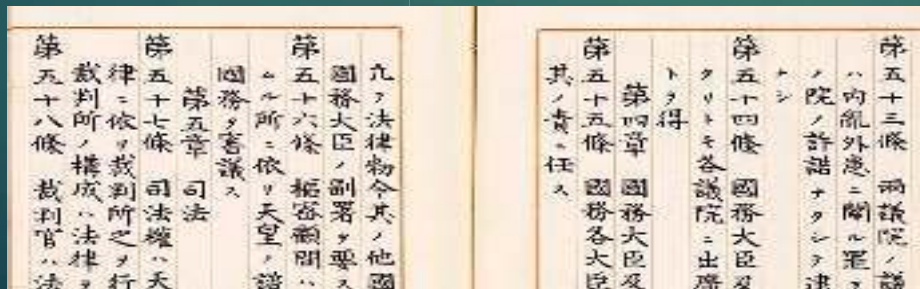 第五十三條 兩議院ノ議
ハ內亂外患ニ關ル罪ヲ
ノ院ノ許諾ナクシテ逮
ナシ
第五十四條 國務大臣及
タリトモ各議院ニ出席
トヲ得
第四章 國務大臣及
第五十五條 國務各大臣
其ノ責ニ任ス
凡テ法律勅令其ノ他國
國務大臣ノ副署ヲ要ス
第五十六條 樞密顧問ハ
ムル所ニ依リ天皇ノ諮
國務ヲ審議ス
第五章 司法
第五十七條 司法權ハ天
律ニ依リ裁判所之ヲ行
裁判所ノ構成ハ法律ヲ
第五十八條 裁判官ハ法